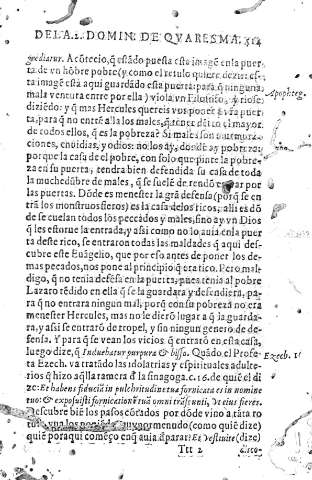 DE LA.I. DOMIN. DE QVARESMA. 514
grediatur. Acõtecio, q̃ estãdo puesta este imagẽ en la puer
ta de vn hõbre pobre (y como el retulo quiere dezir: es-
ta imagẽ está aqui guardãdo esta puerta: para q̃ ninguna
mala ventura entre por ella) viola vn Filosofo, y riose
diziẽdo: y q̃ mas Hercules quereis vos poner a vra puer
ta, para q̃ no entrẽ a la los males, q̃ tener dẽtro el mayor
de todos ellos, q̃ es la pobreza? Si males son
ciones, enuidias, y odios: no los ay, donde ay pobreza:
por que la casa de el pobre, con solo que pinte la pobre-
za en su puerta, tendra bien defendida su casa de toda
la muchedũbre de males, q̃ se suelẽ de rendõ entrar por
las puertas. Dõde es menester la grã defensa (porq̃ se en
trã los monstruos fieros) es la casa de los ricos, alli es dõ
de se cuelan todos los peccados y males, sino ay vn Dios
q̃ les estorue la entrada, y assi como no la auia en la puer
ta deste rico, se entraron todas las maldades q̃ aqui des-
cubre este Euãgelio, que por eso antes de poner los de-
mas pecados, nos pone al principio q̃ era rico. Pero mal
digo, q̃ no tenia defẽsa en la puerta, pues tenia al pobre
Lazaro tẽdido en ella q̃ se la guardara y defendiera, pa-
ra q̃ no entrara ningun mal, porq̃ con su pobreza no era
menester Hercules, mas no le dierõ lugar a q̃ la guarda-
ra, y assi se entrarõ de tropel, y sin ningun genero de de-
fensa. Y para q̃ se vean los vicios q̃ entrarõ en esta casa,
luego dize, q̃ Induebatur purpura & bisso. Quãdo el Profe
ta Ezech. va tratãdo las idolatrias y espirituales adulte-
rios q̃ hizo aq̃lla ramera d la sinagoga. c. 16. de quiẽ el di
ze: Et habens fiduciã in pulchritudine tua fornicata es in nomine
tuo: & exposuisti fornicationẽ tuã omni trãseunti, vt eius fieres.
Descubre biẽ los pasos cõtados por dõde vino a tãta ro
tura, yua los poniẽdo muy por menudo (como quiẽ dize)
quiẽ por aqui comẽço en q̃ auia d parar: Et de (dize)
Ttt 2
Apophteg.
Ezech. 16